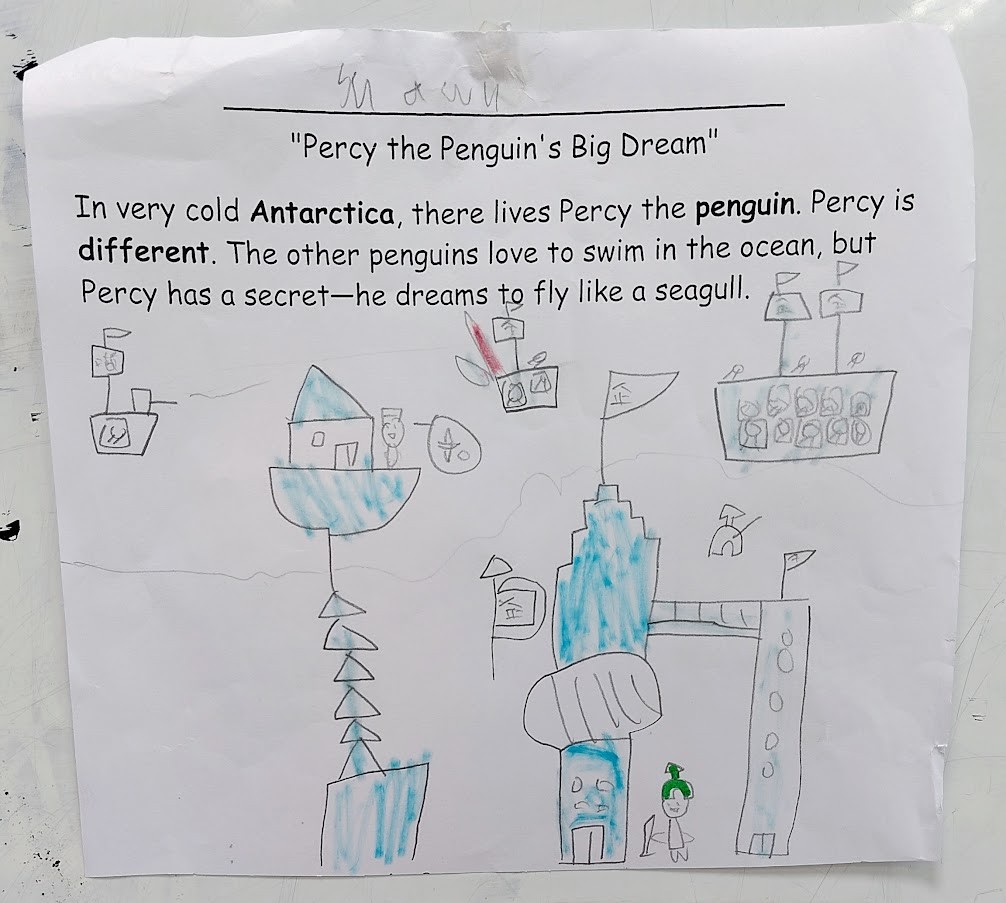 "Percy the Penguin's Big Dream"
In very cold Antarctica, there lives Percy the penguin. Percy is
different. The other penguins love to swim in the ocean, but
Percy has a secret—he dreams to fly like a seagull.